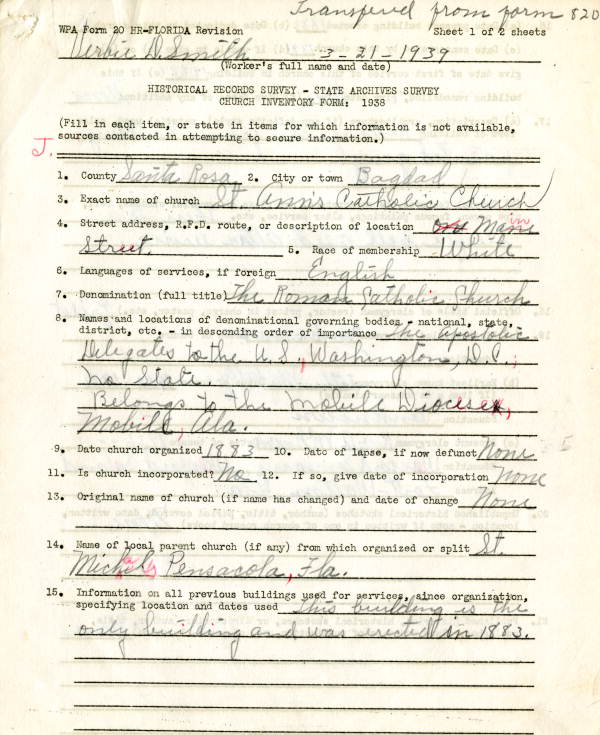 Transfered from form 820
WPA Form 20 HR-FLORIDA Revision Sheet 1 of 2 sheets
Verbie D. Smith 3-21-1939
(Worker's full name and date)
HISTORICAL RECORDS SURVEY - STATE ARCHIVES SURVEY
CHURCH INVENTORY FORM: 1938
(Fill in each item, or state in items for which information is not available,
sources contacted in attempting to secure information.)
J.
1. County Santa Rosa 2. City or town Bagdad
3. Exact name of church St. Ann's Catholic Church
4. Street address, R.F.D. route, or description of location on Main
Street. 5. Race of membership White
6. Languages of services, if foreign English
7. Denomination (full title) The Roman Catholic Church
8. Names and locations of denominational governing bodies - national, state,
district, etc. - in descending order of importance The Apostolic
Delegates to the U.S., Washington, D.C.;
No State.
Belongs to the Mobile Diocese,
Mobile, Ala.
9. Date church organized 1883 10. Date of lapse, if now defunct None
11. Is church incorporated? No 12. If so, give date of incorporation None
13. Original name of church (if name has changed) and date of change None
14. Name of local parent church (if any) from which organized or split St.
Pensacola, Fla.
15. Information on all previous buildings used for services, since organization,
specifying location and dates used This building is the
only building and was erected in 1883.